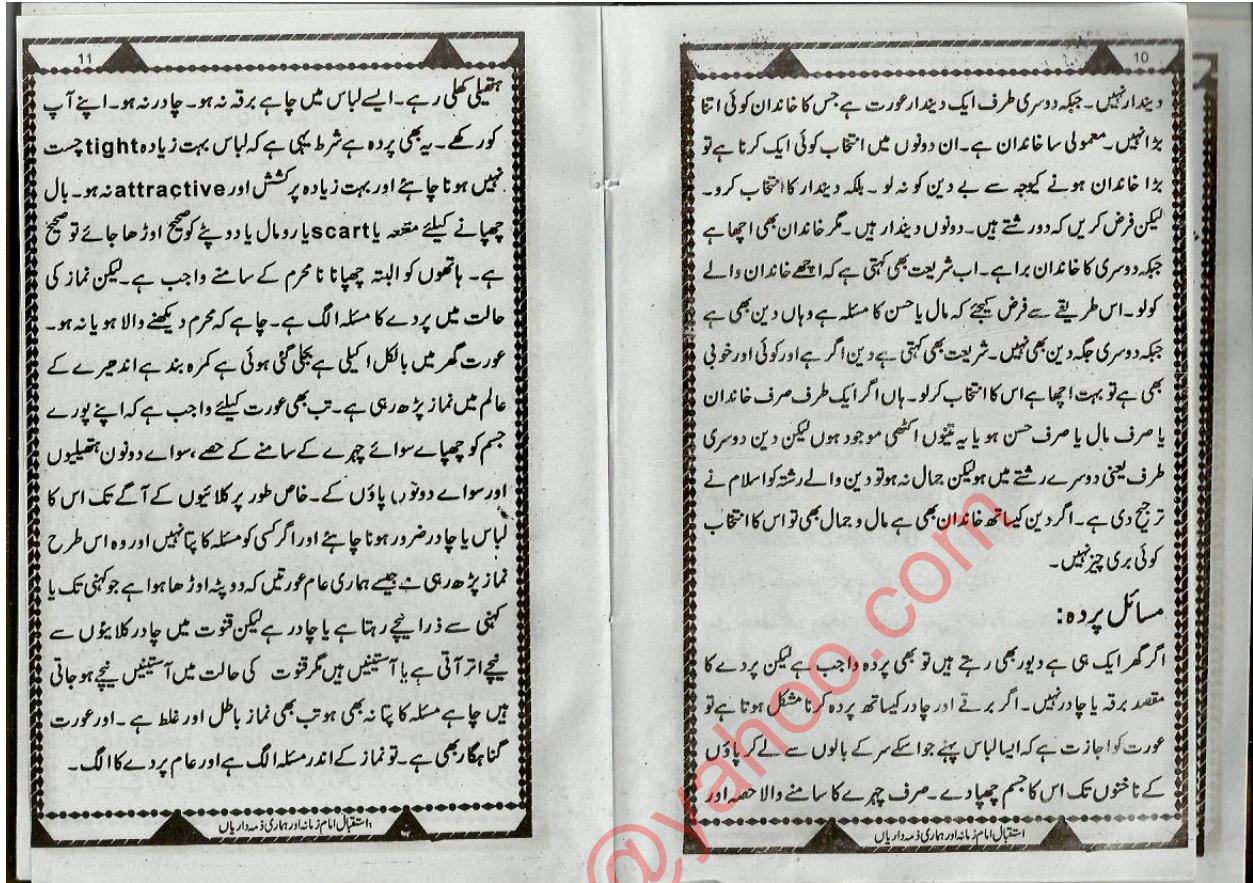 10
دیندار نہیں۔ جبکہ دوسری طرف ایک دیندار عورت ہے جس کا خاندان کوئی اتنا
بڑا نہیں۔ معمولی سا خاندان ہے۔ ان دونوں میں انتخاب کوئی ایک کرنا ہے تو
بڑا خاندان ہونے کیوجہ سے بے دین کو نہ لو۔ بلکہ دیندار کا انتخاب کرو۔
لیکن فرض کریں کہ دو رشتے ہیں۔ دونوں دیندار ہیں۔ مگر خاندان بھی اچھا ہے
جبکہ دوسری کا خاندان برا ہے۔ اب شریعت بھی کہتی ہے کہ اچھے خاندان والے
کو لو۔ اس طریقے سے فرض کیجئے کہ مال یا حسن کا مسئلہ ہے وہاں دین بھی ہے
جبکہ دوسری جگہ دین بھی نہیں۔ شریعت بھی کہتی ہے دین اگر ہے اور کوئی اور خوبی
بھی ہے تو بہت اچھا ہے اس کا انتخاب کر لو۔ ہاں اگر ایک طرف صرف خاندان
یا صرف مال یا صرف حسن ہو یا یہ تینوں اکٹھی موجود ہوں لیکن دین دوسری
طرف یعنی دوسرے رشتے میں ہو لیکن جمال نہ ہو تو دین والے رشتہ کو اسلام نے
ترجیح دی ہے۔ اگر دین کیساتھ خاندان بھی ہے مال و جمال بھی تو اس کا انتخاب
کوئی بری چیز نہیں۔
مسائل پردہ:
اگر گھر ایک ہی ہے دیور بھی رہتے ہیں تو بھی پردہ واجب ہے لیکن پردے کا
مقصد برقہ یا چادر نہیں۔ اگر برقے اور چادر کیساتھ پردہ کرنا مشکل ہوتا ہے تو
عورت کو اجازت ہے کہ ایسا لباس پہنے جو اسکے سر کے بالوں سے لے کر پاؤں
کے ناخنوں تک اس کا جسم چھپا دے۔ صرف چہرے کا سامنے والا حصہ اور
استقبال امام زمانہ اور ہماری ذمہ داریاں
11
ہتھیلی کھلی رہے۔ ایسے لباس میں چاہے برقہ نہ ہو۔ چادر نہ ہو۔ اپنے آپ
کو رکھے۔ یہ بھی پردہ ہے شرط یہی ہے کہ لباس بہت زیادہ tight چست
نہیں ہونا چاہئے اور بہت زیادہ پرکشش اور attractive نہ ہو۔ بال
چھپانے کیلئے مقنعہ یا scart یا رومال یا دوپٹے کو صحیح اوڑھا جائے تو صحیح
ہے۔ ہاتھوں کو البتہ چھپانا نا محرم کے سامنے واجب ہے۔ لیکن نماز کی
حالت میں پردے کا مسئلہ الگ ہے۔ چاہے کہ محرم دیکھنے والا ہو یا نہ ہو۔
عورت گھر میں بالکل اکیلی ہے بجلی گئی ہوئی ہے کمرہ بند ہے اندھیرے کے
عالم میں نماز پڑھ رہی ہے۔ تب بھی عورت کیلئے واجب ہے کہ اپنے پورے
جسم کو چھپاے سوائے چہرے کے سامنے کے حصے، سواے دونوں ہتھیلیوں
اور سواے دونوں پاؤں کے۔ خاص طور پر کلائیوں کے آگے تک اس کا
لباس یا چادر ضرور ہونا چاہئے اور اگر کسی کو مسئلہ کا پتا نہیں اور وہ اس طرح
نماز پڑھ رہی ہے جیسے ہماری عام عورتیں کہ دوپٹہ اوڑھا ہوا ہے جو کہنی تک یا
کہنی سے ذرا نیچے رہتا ہے یا چادر ہے لیکن قنوت میں چادر کلائیوں سے
نیچے اتر آتی ہے یا آستینیں ہیں مگر قنوت کی حالت میں آستینیں نیچے ہو جاتی
ہیں چاہے مسئلہ کا پتا نہ بھی ہو تب بھی نماز باطل اور غلط ہے۔ اور عورت
گناہگار بھی ہے۔ تو نماز کے اندر مسئلہ الگ ہے اور عام پردے کا الگ۔
استقبال امام زمانہ اور ہماری ذمہ داریاں
@yahoo.com